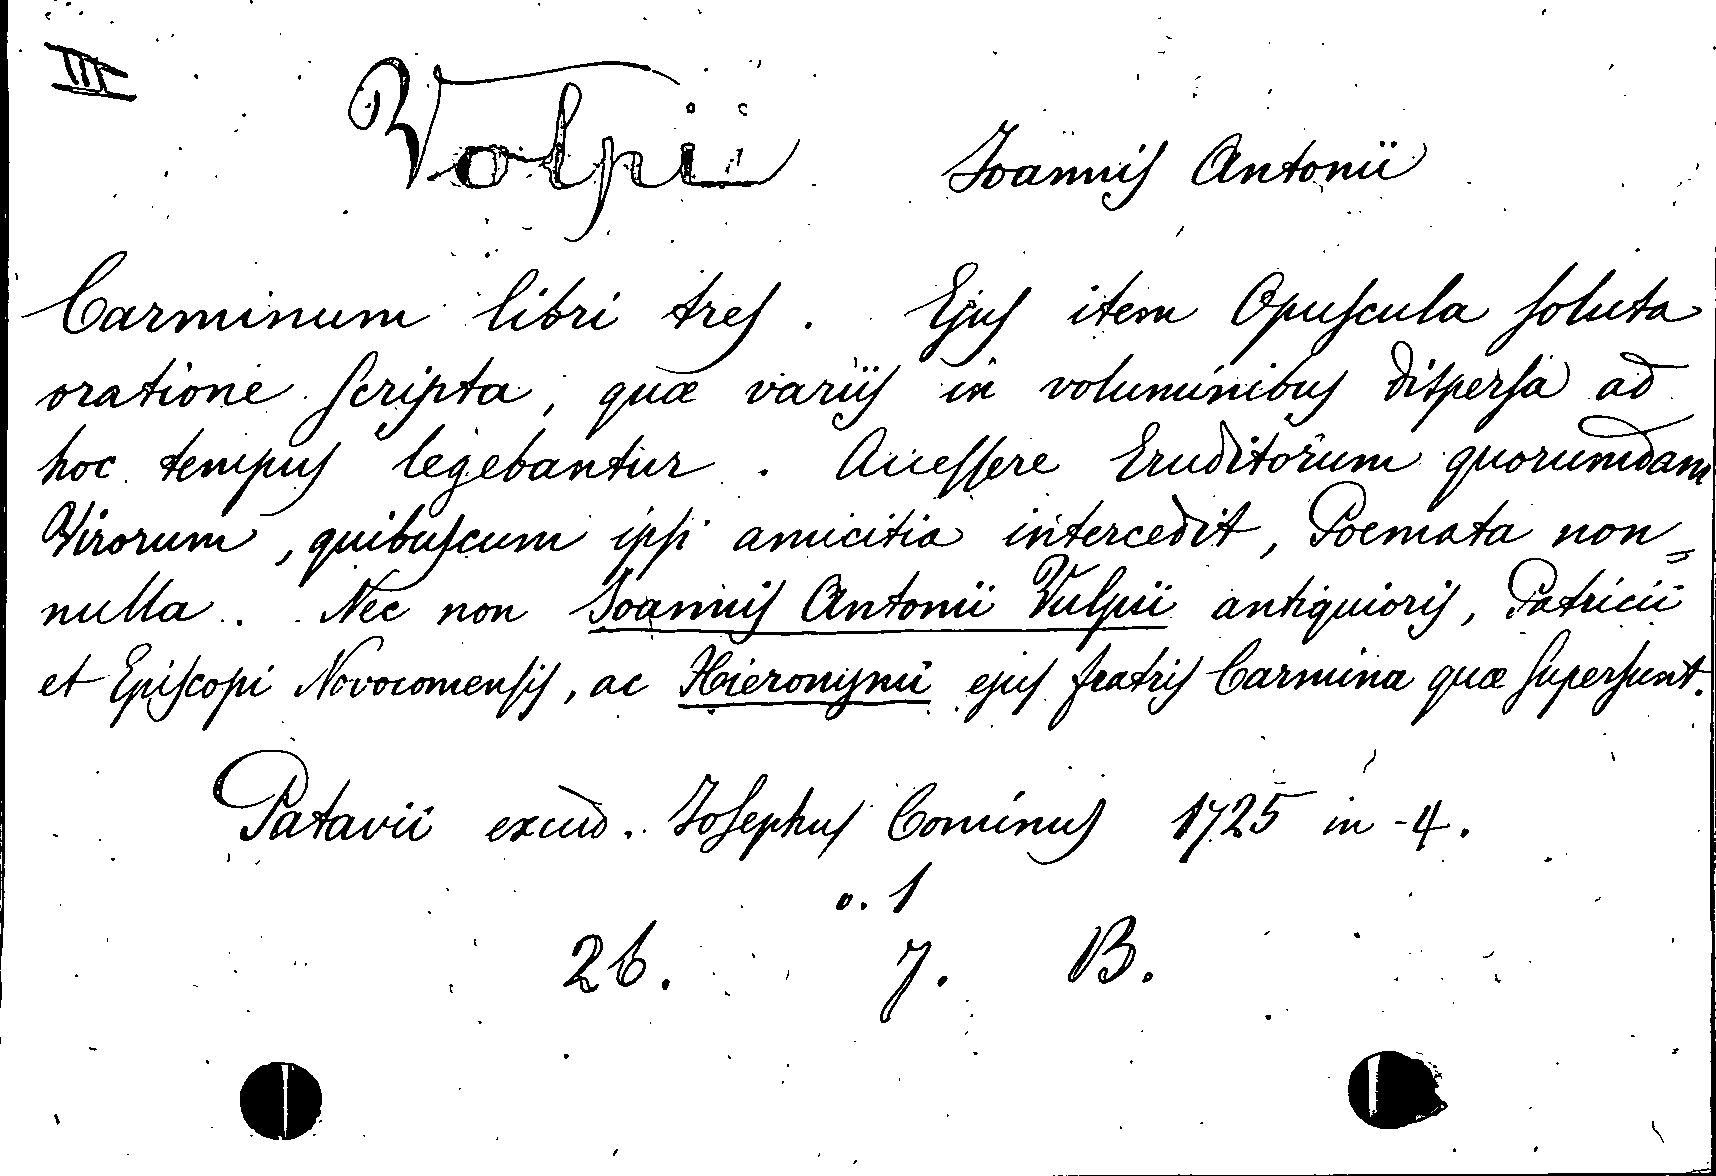 III
Volpii Joannis Antonii
Carminum libri tres. Ejus item Opuscula soluta
oratione scripta, quæ variis in voluminibus dispersa ad
hoc tempus legebantur. Accessere Eruditorum quorumdam
Virorum, quibuscum ipsi amicitia intercedit, Poemata non=
nulla. Nec non Joannis Antonii Vulpii antiquioris, Patricii
et Episcopi Novocomensis, ac Hieronymi ejus fratris Carmina quæ supersunt.
Patavii excud. Josephus Cominus 1725 in-4.
o. 1
26. 7. B.